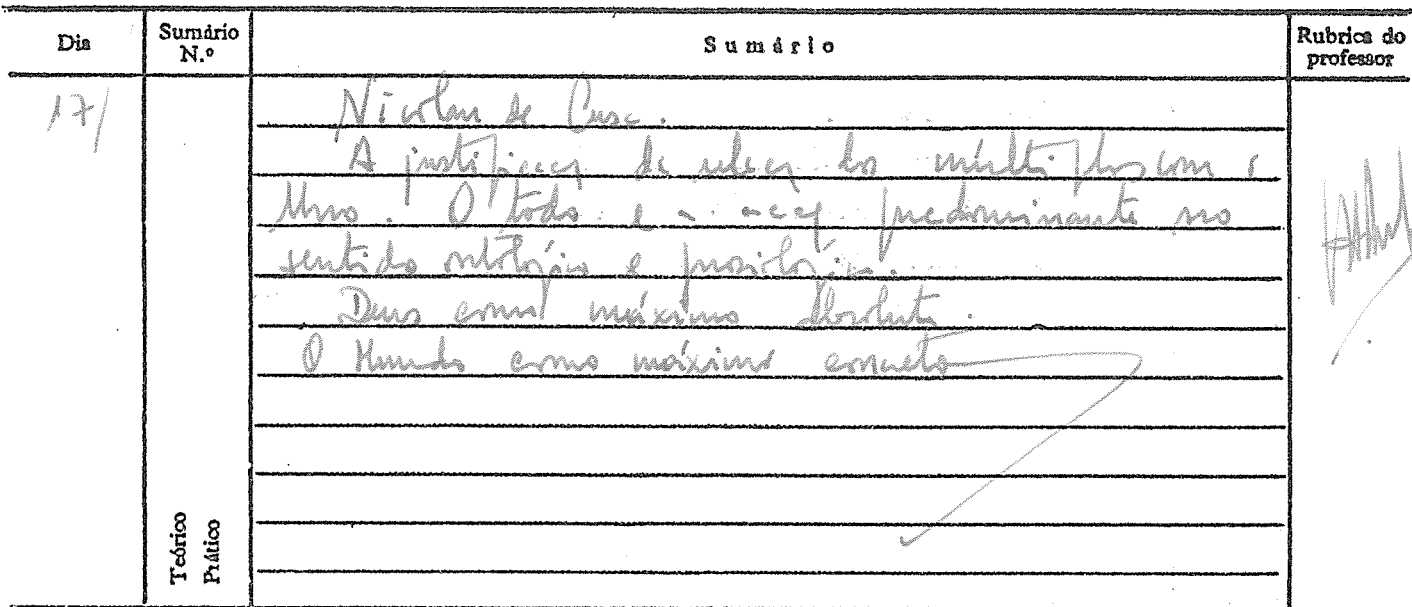 Dia
Sumário N.º
Sumário
Rubrica do professor
17/
Nicolau de Cusa.
A justificação da relação dos múltiplos com o
Uno. O todo e a predominante no
sentido ontológico e gnosiológico.
Deus como máximo absoluto.
O Mundo como máximo concreto
Teórico
Prático